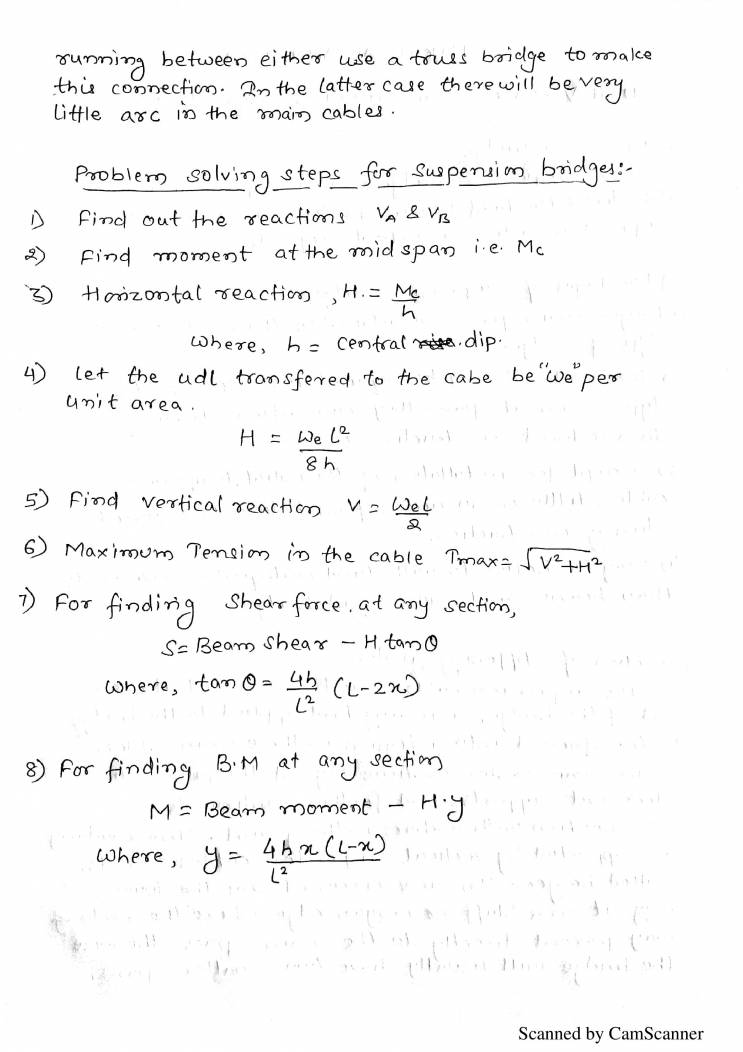 running between either use a truss bridge to make
this connection. In the latter case there will be very
little arc in the main cables.
Problem solving steps for suspension bridges:-
1) Find out the reactions VA & VB
2) Find moment at the mid span i.e. Mc
3) Horizontal reaction, H. = Mc/h
Where, h = central dip.
4) Let the udl transfered to the cabe be "we" per
unit area.
H = We L²/8h
5) Find vertical reaction V = WeL/2
6) Maximum Tension in the cable Tmax = √V²+H²
7) For finding Shear force, at any section,
S= Beam shear - H tanθ
Where, tan θ = 4h/L² (L-2x)
8) For finding B.M at any section
M = Beam moment - H.y
Where, y = 4hx(L-x)/L²
Scanned by CamScanner